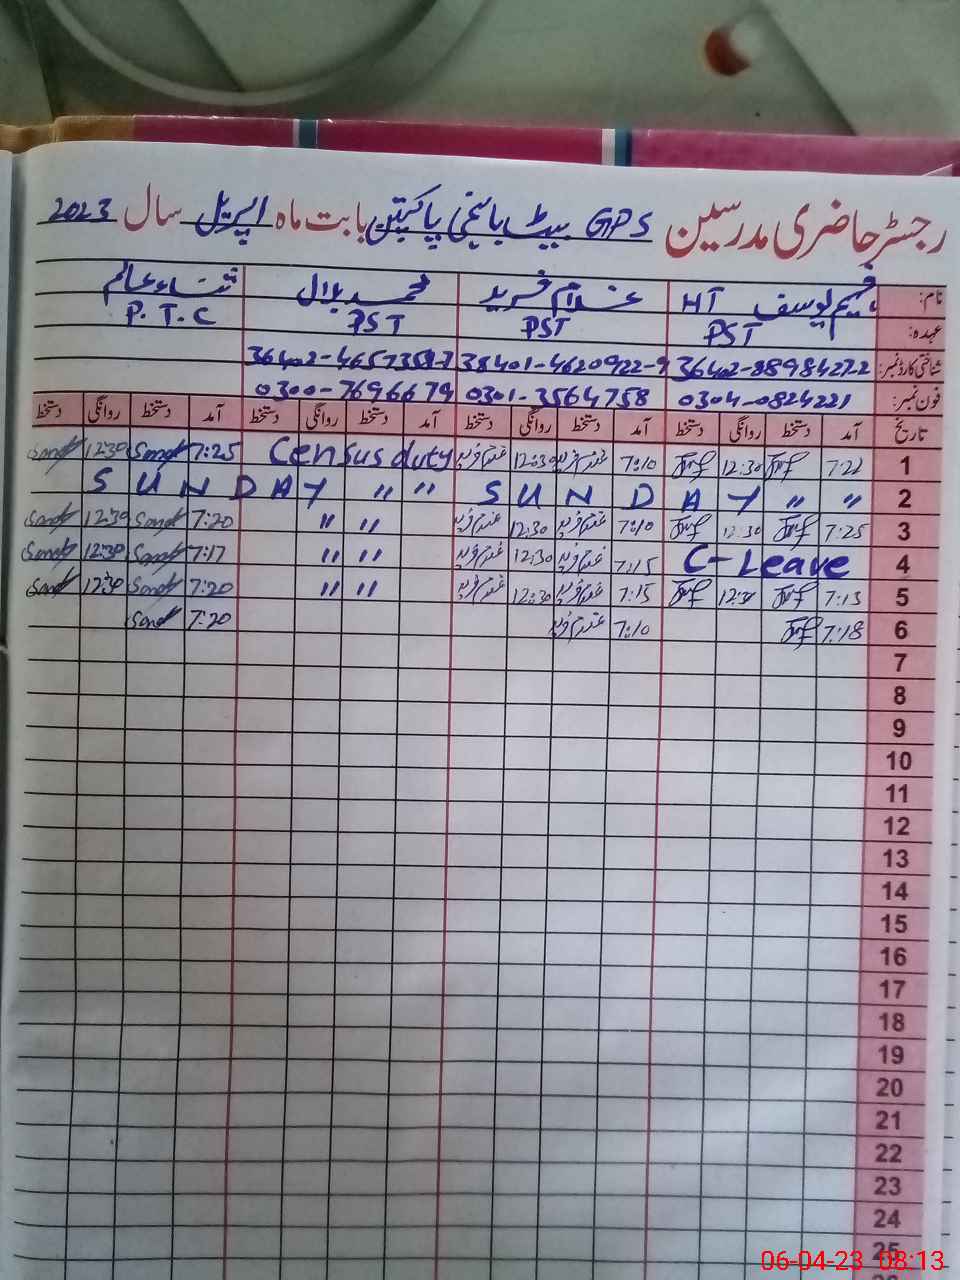 رجسٹر حاضری مدرسین GPS بابت ماہ اپریل سال 2023
نام: فہیم یوسف HT غلام فرید محمد بلال ثناء عالم
عہدہ: PST PST PST P.T.C
شناختی کارڈ نمبر: 38401-4620922-9
فون نمبر: 0304-0824221 0301-3564758 0300-7696679
تاریخ آمد دستخط روانگی دستخط آمد دستخط روانگی دستخط آمد دستخط روانگی دستخط آمد دستخط روانگی دستخط
1 12:30 7:10 غلام فرید 12:30 غلام فرید Census duty 7:25 12:30
2 S U N D A Y " " S U N D A Y " "
3 7:25 12:30 7:10 غلام فرید 12:30 غلام فرید " " 7:20 12:30
4 C-Leave 7:15 غلام فرید 12:30 غلام فرید " " 7:17 12:30
5 12:30 7:15 غلام فرید 12:30 غلام فرید " " 7:20 12:30
6 7:18 7:10 غلام فرید 7:20
7
8
9
10
11
12
13
14
15
16
17
18
19
20
21
22
23
24
25
06-04-23 08:13